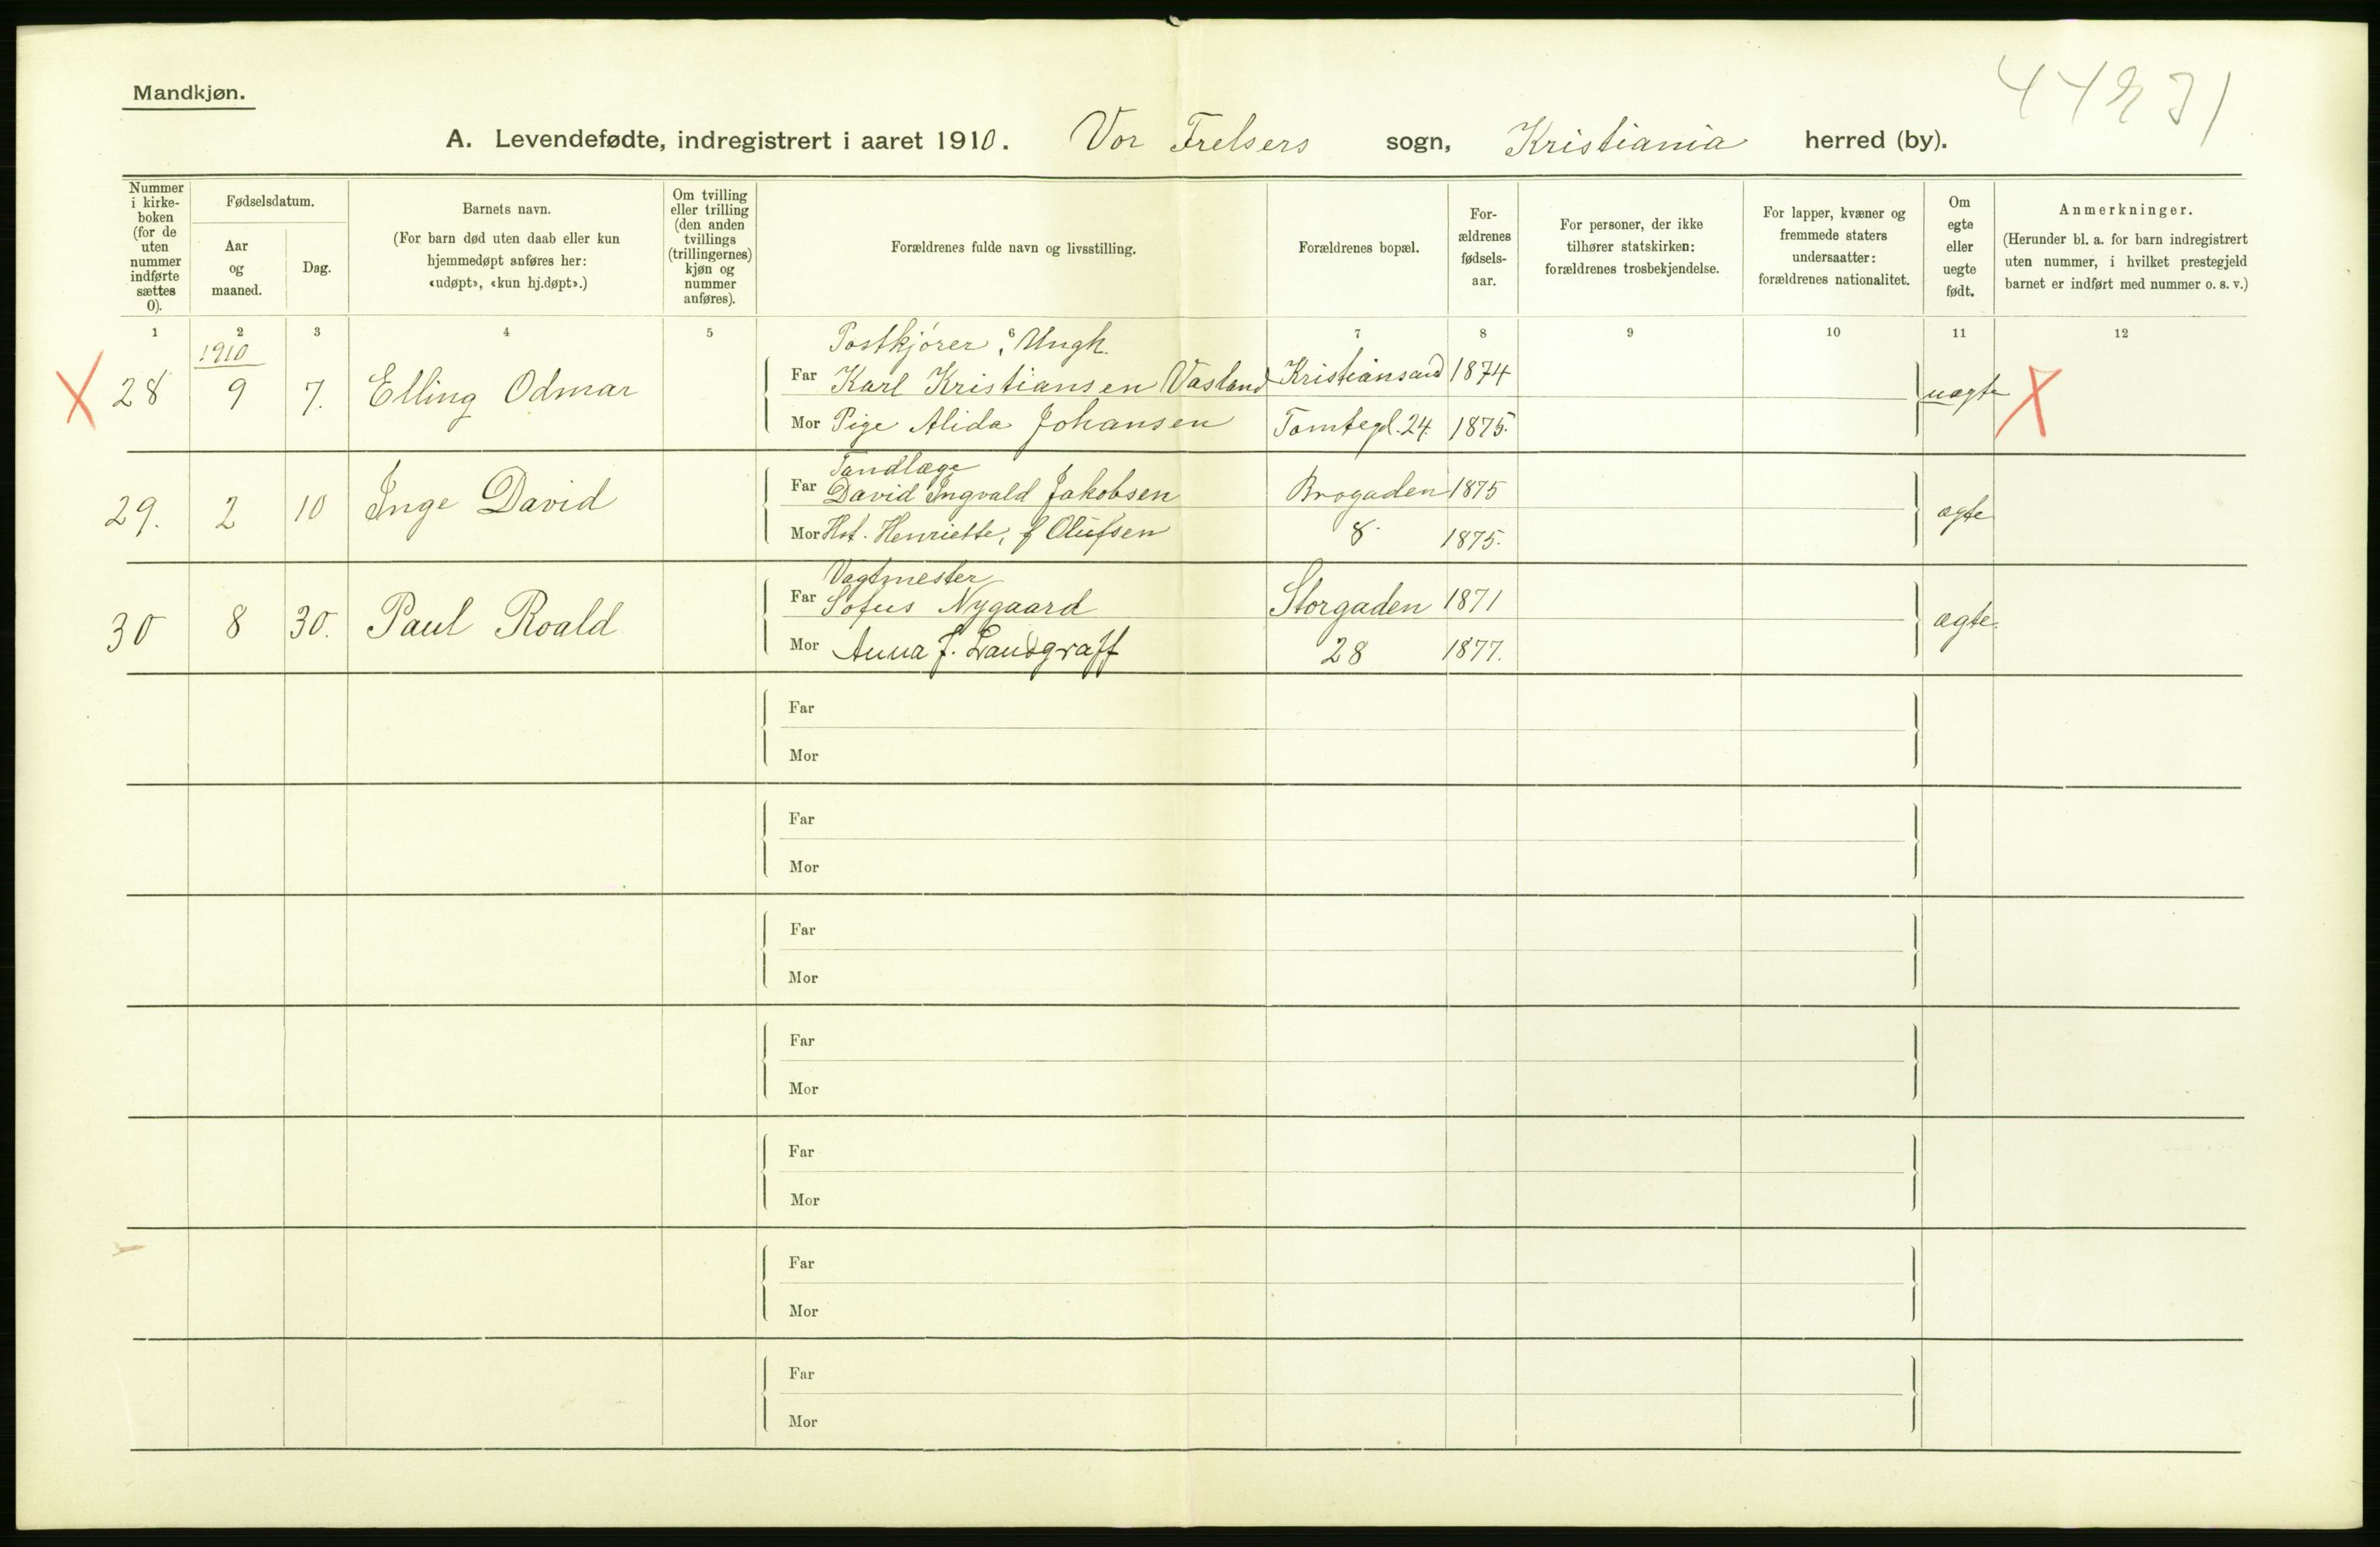 Mandkjøn.
A. Levendefødte, indregistrert i aaret 1910. Vor Frelsers sogn, Kristiania herred (by).
Nummer i kirke-boken (for de uten nummer indførte sættes 0).
Fødselsdatum.
Aar og maaned.
Dag.
Barnets navn.
(For barn død uten daab eller kun hjemmedøpt anføres her: «udøpt», «kun hj.døpt».)
Om tvilling eller trilling (den anden tvillings (trillingernes) kjøn og nummer anføres).
Forældrenes fulde navn og livsstilling.
Forældrenes bopæl.
For-ældrenes fødsels-aar.
For personer, der ikke tilhører statskirken: forældrenes trosbekjendelse.
For lapper, kvæner og fremmede staters undersaatter: forældrenes nationalitet.
Om egte eller uegte født.
Anmerkninger.
(Herunder bl. a. for barn indregistrert uten nummer, i hvilket prestegjeld barnet er indført med nummer o. s. v.)
1 2 3 4 5 6 7 8 9 10 11 12
1910
Postkjører, Ungk.
X 28 9 7. Elling Odmar Far Karl Kristiansen Vasland Kristiansand 1874 uægte X
Mor Pige Alida Johansen Tomtegd. 24. 1875.
Tandlæge
29. 2 10 Inge David Far David Ingvald Jakobsen Brogaden 1875 ægte
Mor Hst. Henriette, f Olufsen 8. 1875.
Vagtmester
30 8 30. Paul Roald Far Sofus Nygaard Storgaden 1871 ægte.
Mor Anna J. Landgraff 28 1877.
Far
Mor
Far
Mor
Far
Mor
Far
Mor
Far
Mor
Far
Mor
Far
Mor